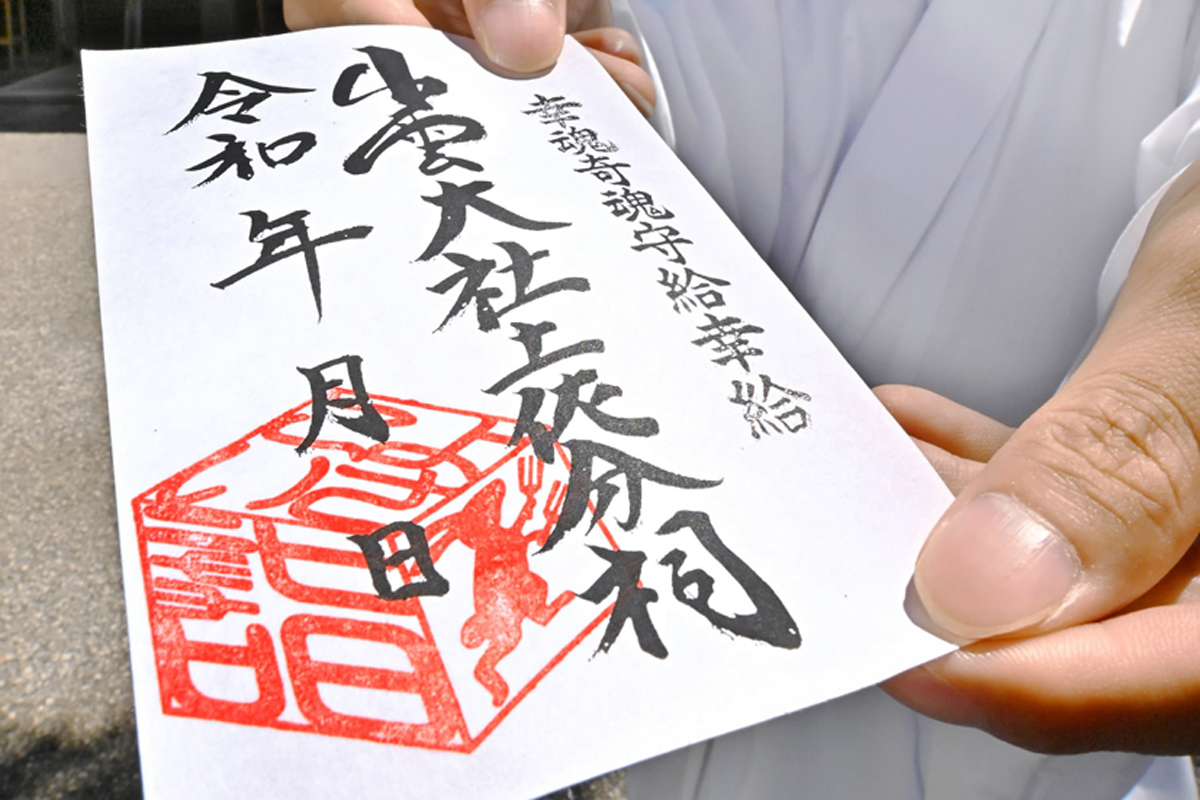 幸魂奇魂守給幸給
出雲大社土佐分祠
令和 年 月 日